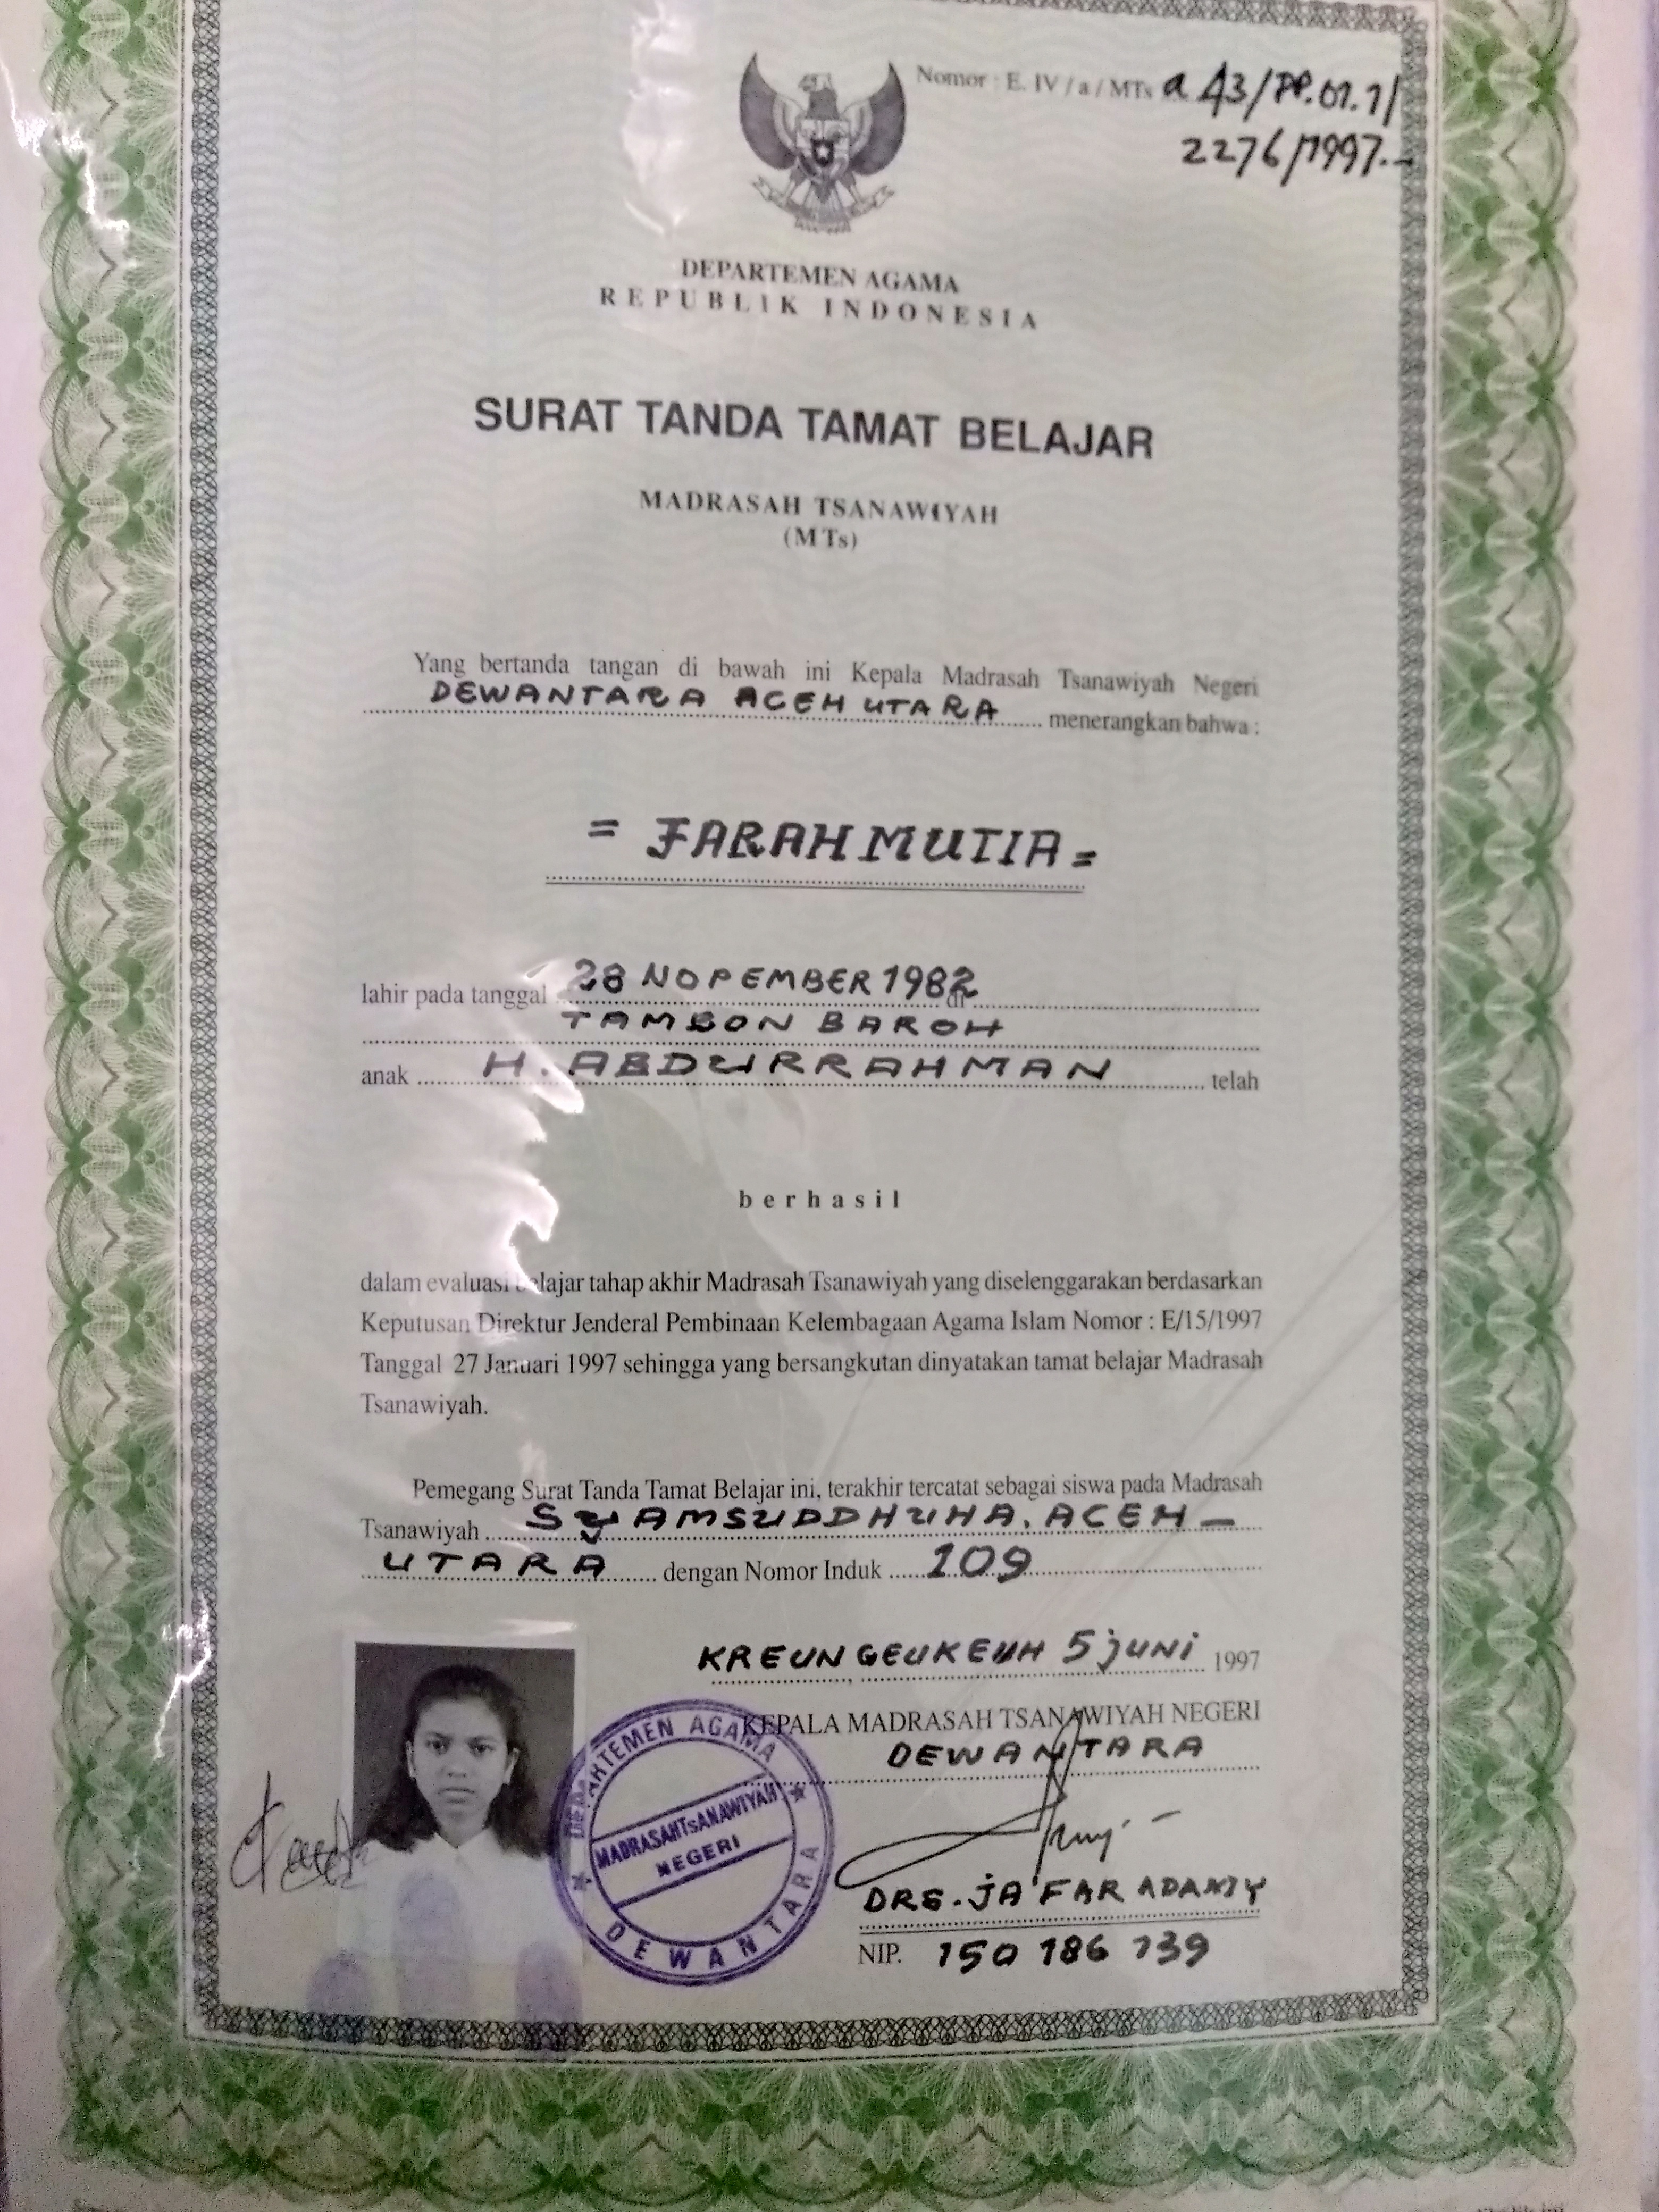 Nomor : E. IV / a / MTs a 43/PP.01.1/
2276/1997.-
DEPARTEMEN AGAMA
REPUBLIK INDONESIA
SURAT TANDA TAMAT BELAJAR
MADRASAH TSANAWIYAH
(MTs)
Yang bertanda tangan di bawah ini Kepala Madrasah Tsanawiyah Negeri
DEWANTARA ACEH UTARA menerangkan bahwa :
= FARAH MUTIA =
lahir pada tanggal 28 NOPEMBER 1982 di
TAMBON BAROH
anak H. ABDURRAHMAN telah
berhasil
dalam evaluasi belajar tahap akhir Madrasah Tsanawiyah yang diselenggarakan berdasarkan
Keputusan Direktur Jenderal Pembinaan Kelembagaan Agama Islam Nomor : E/15/1997
Tanggal 27 Januari 1997 sehingga yang bersangkutan dinyatakan tamat belajar Madrasah
Tsanawiyah.
Pemegang Surat Tanda Tamat Belajar ini, terakhir tercatat sebagai siswa pada Madrasah
Tsanawiyah SYAMSUDDHUHA. ACEH -
UTARA dengan Nomor Induk 109
KREUNGEUKEUH 5 juni 1997
KEPALA MADRASAH TSANAWIYAH NEGERI
DEWANTARA
DEPARTEMEN AGAMA
MADRASAH TsANAWIYAH
NEGERI
DEWANTARA
DRS. JA'FAR ADAMIY
NIP. 150 186 739